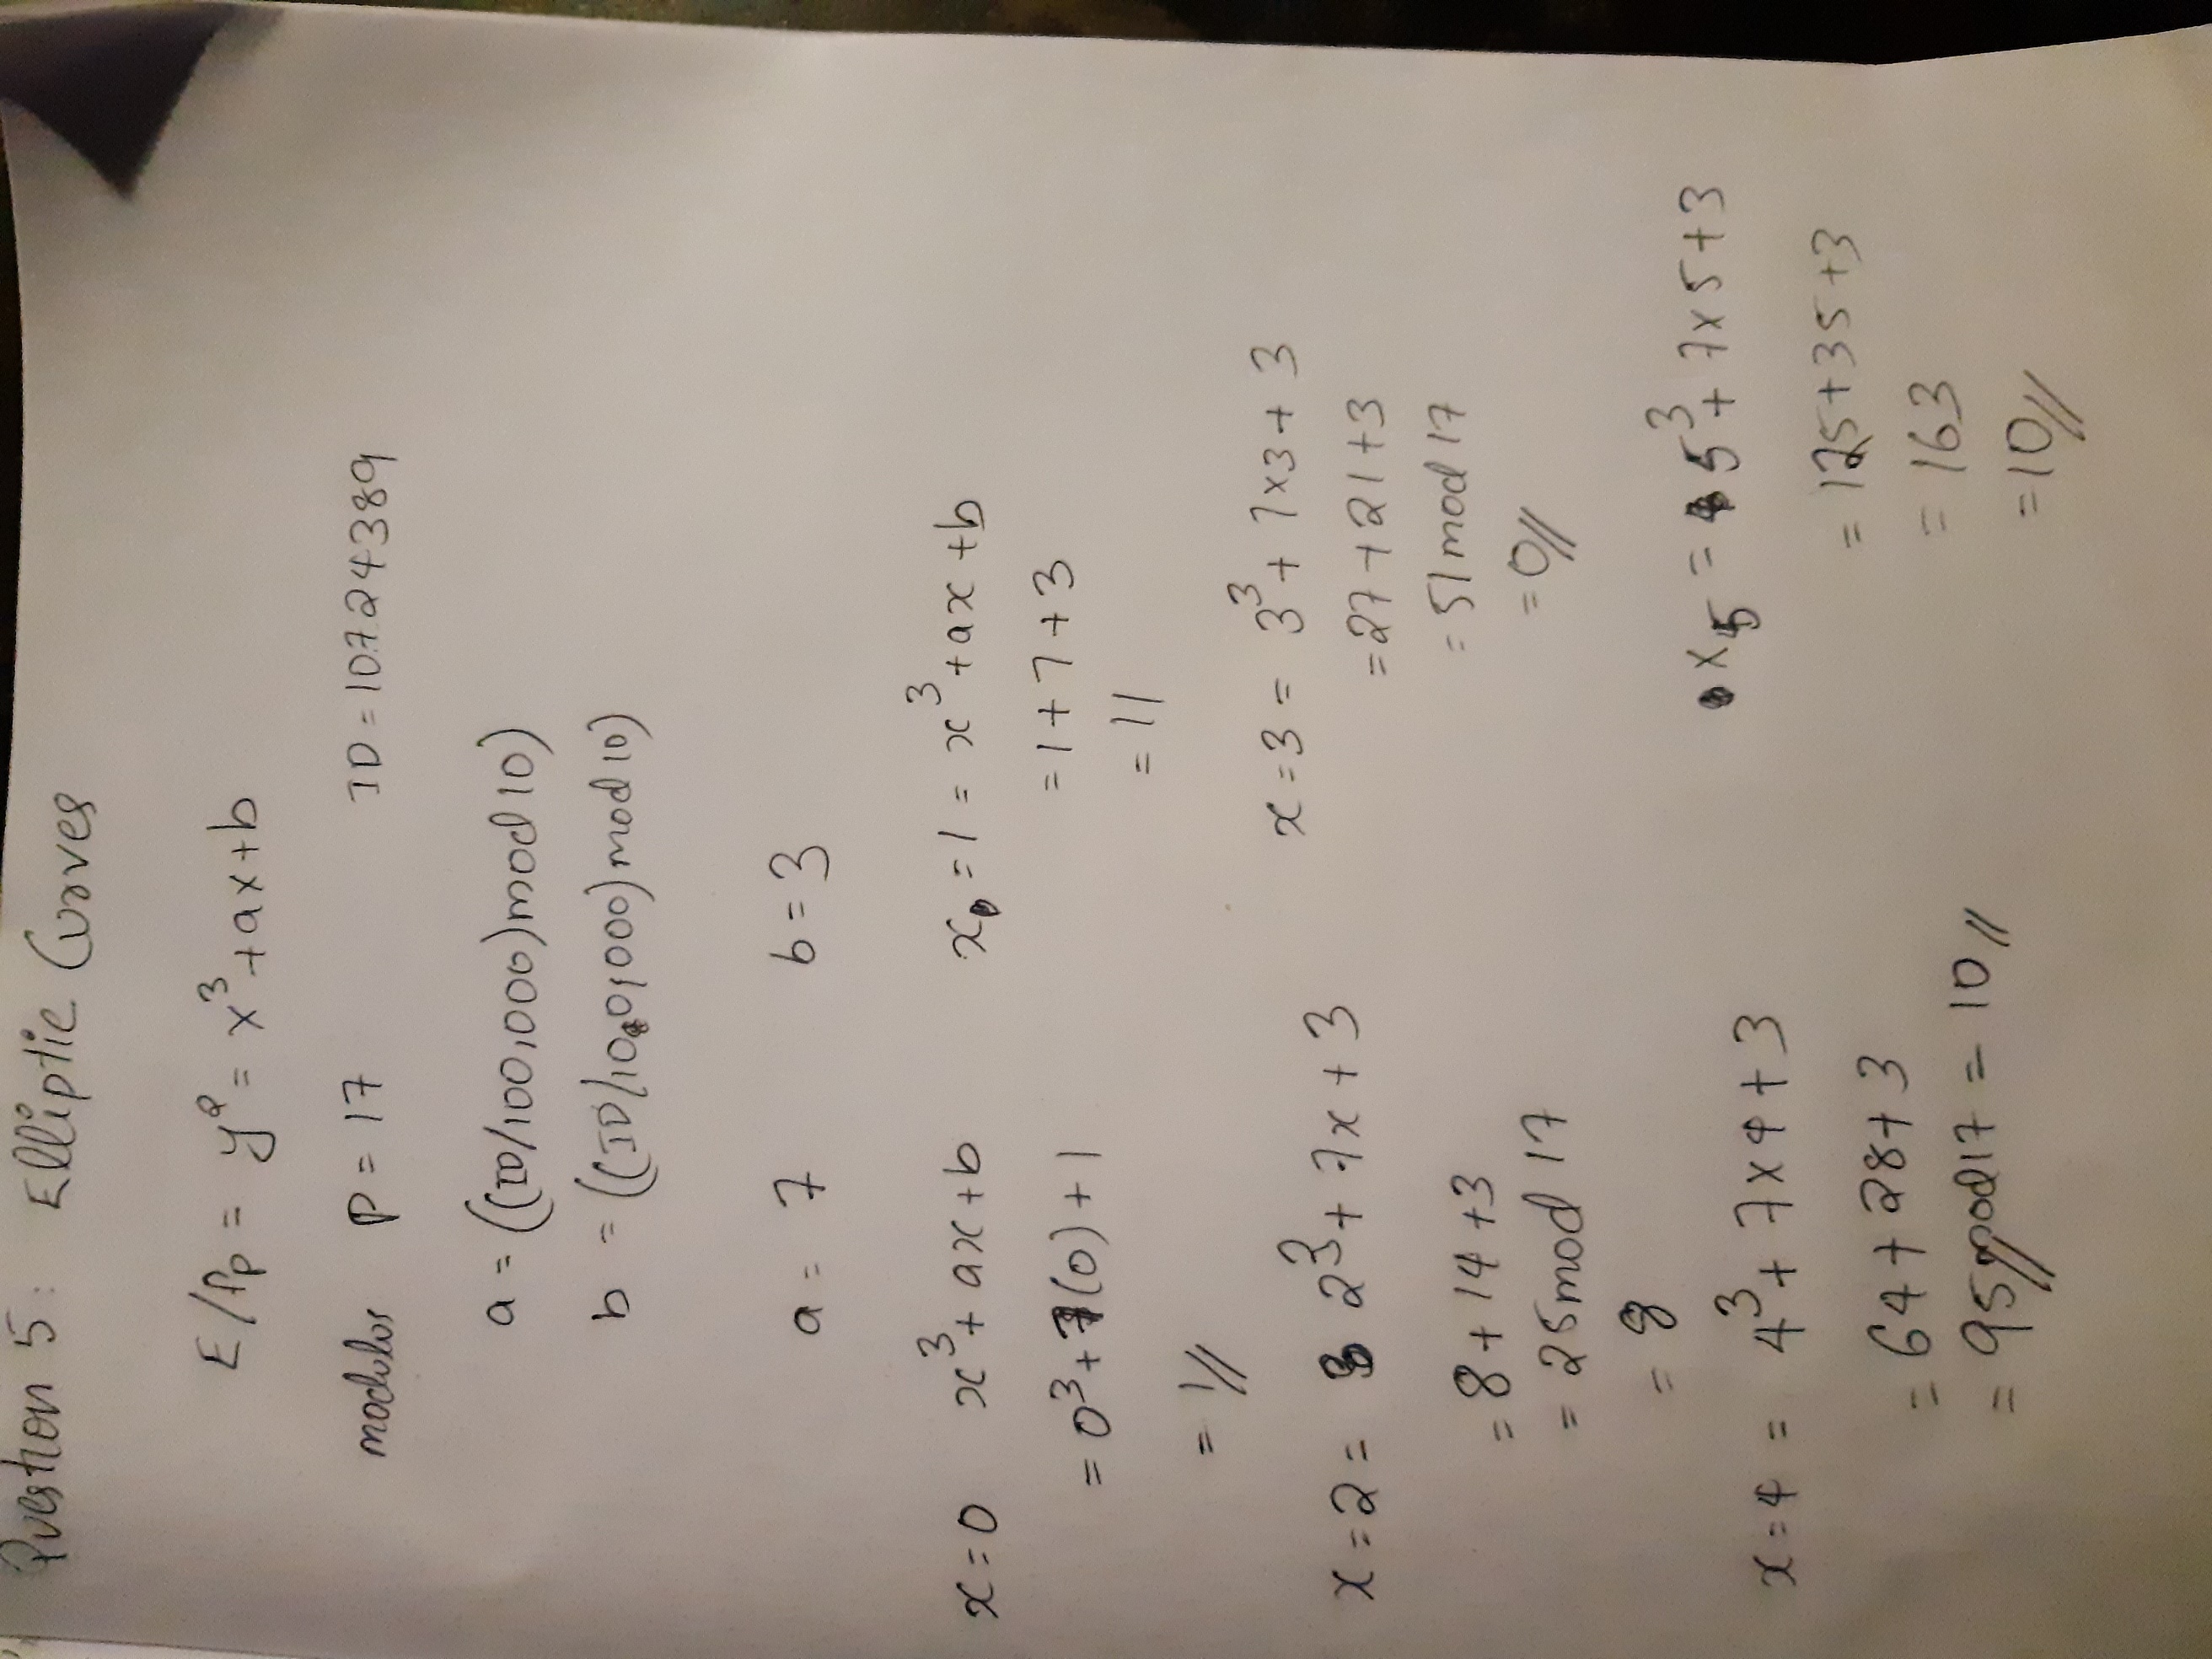 Question 5: Elliptic Curves
E/Fp = y² = x³ + ax + b
modulos P = 17 ID = 10724389
a = ((ID/100,000) mod 10)
b = ((ID/10,000) mod 10)
a = 7 b = 3
x = 0 x³ + ax + b
= 0³ + 7(0) + 1
= 1//
x = 1 = x³ + ax + b
= 1 + 7 + 3
= 11
x = 2 = 2³ + 7x + 3
= 8 + 14 + 3
= 25 mod 17
= 8
x = 3 = 3³ + 7x3 + 3
= 27 + 21 + 3
= 51 mod 17
= 0//
x = 4 = 4³ + 7x4 + 3
= 64 + 28 + 3
= 95 mod 17 = 10//
x5 = 5³ + 7x5 + 3
= 125 + 35 + 3
= 163
= 10//